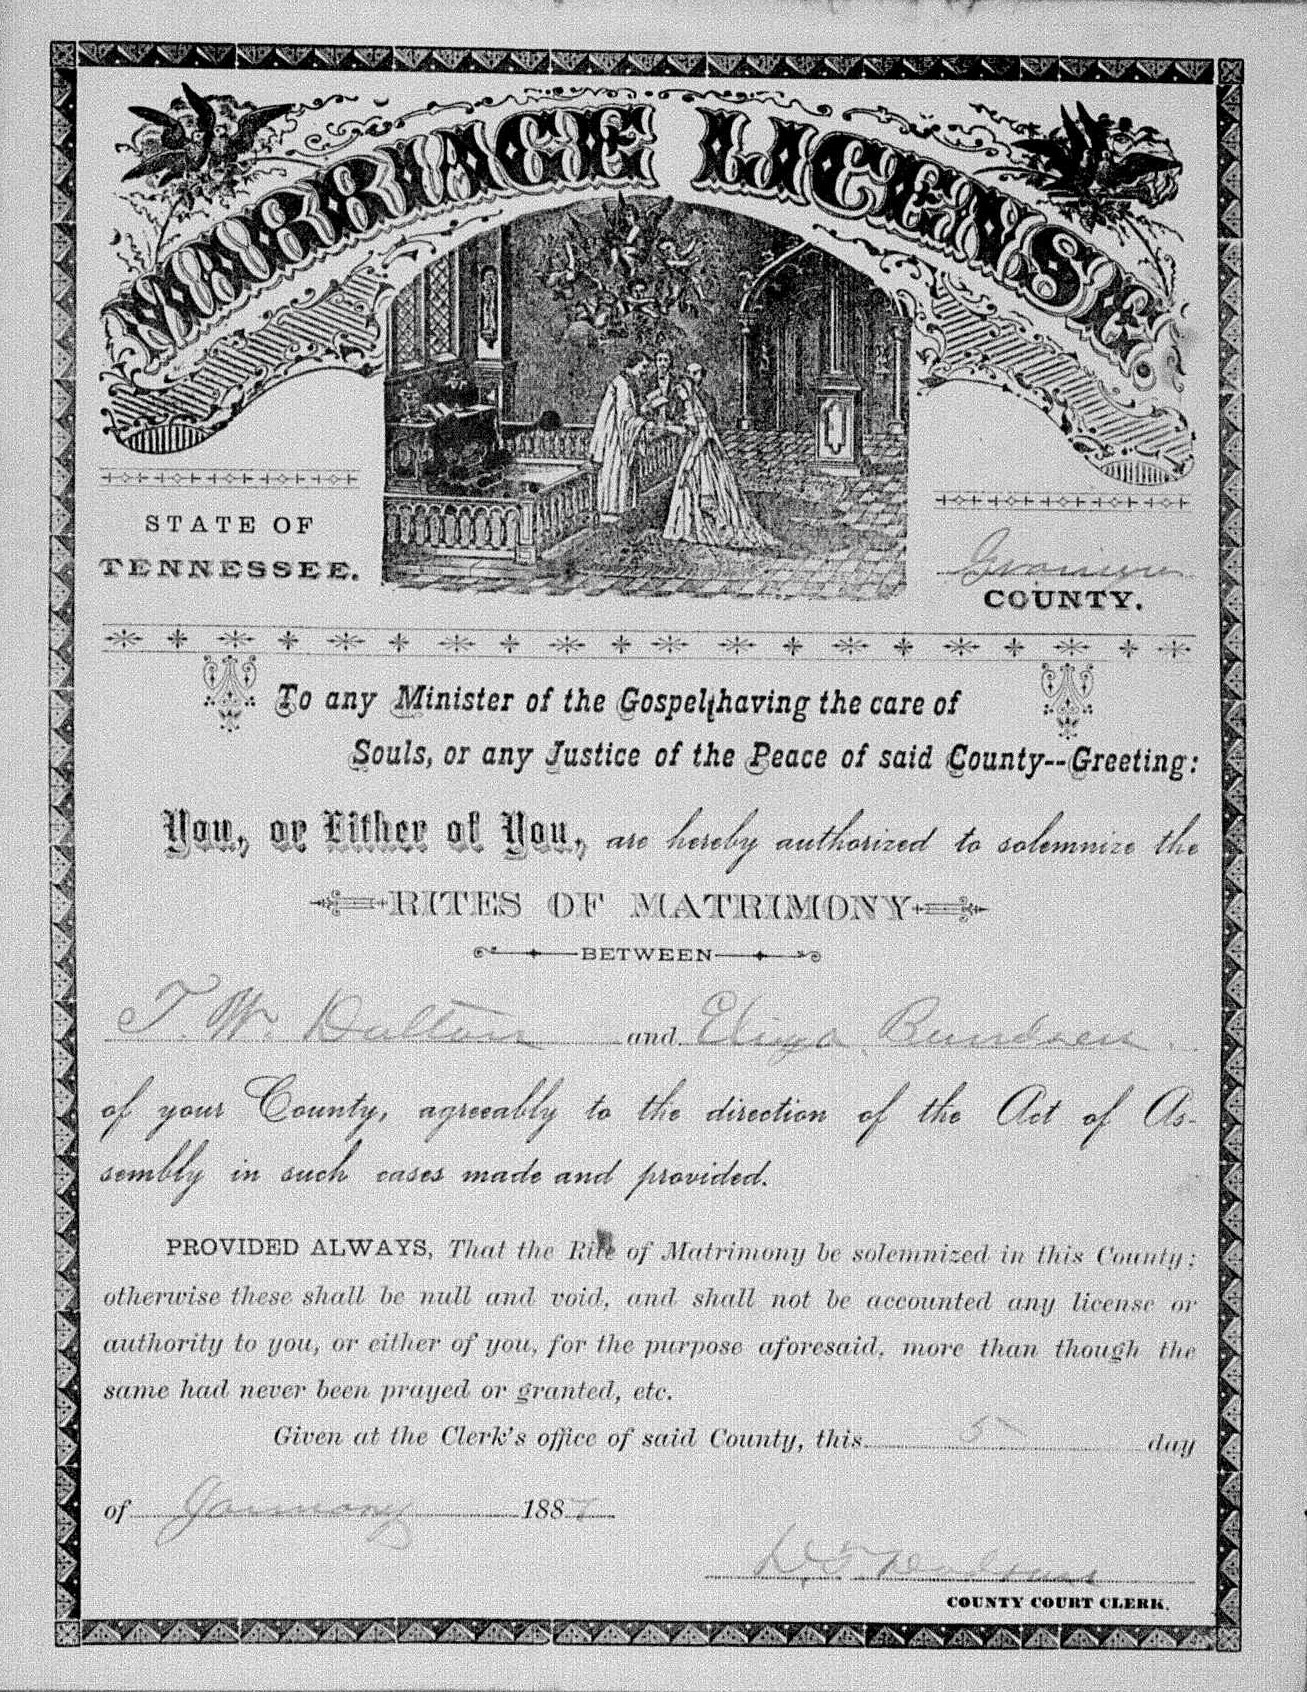 MARRIAGE LICENSE
STATE OF
TENNESSEE.
COUNTY.
To any Minister of the Gospel having the care of
Souls, or any Justice of the Peace of said County--Greeting:
You, or Either of You, are hereby authorized to solemnize the
RITES OF MATRIMONY
BETWEEN
T. W. Dalton and Eliza
of your County, agreeably to the direction of the Act of As-
sembly in such cases made and provided.
PROVIDED ALWAYS, That the Rite of Matrimony be solemnized in this County;
otherwise these shall be null and void, and shall not be accounted any license or
authority to you, or either of you, for the purpose aforesaid, more than though the
same had never been prayed or granted, etc.
Given at the Clerk's office of said County, this 5 day
of January 1887
COUNTY COURT CLERK.